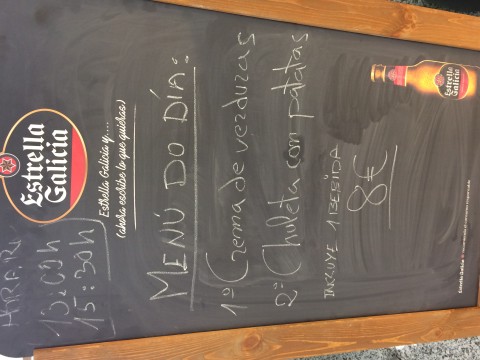 HORARI
13:00h
15:30h
Estrella
Galicia
Estrella Galicia y....
(ahora escribe lo que quieras)
MENÚ DO DÍA:
1º Crema de verduras
2º Chuleta con patatas
INCLUYE 1 BEBIDA
8€
Estrella
Galicia
Estrella Galicia recomienda el consumo responsable